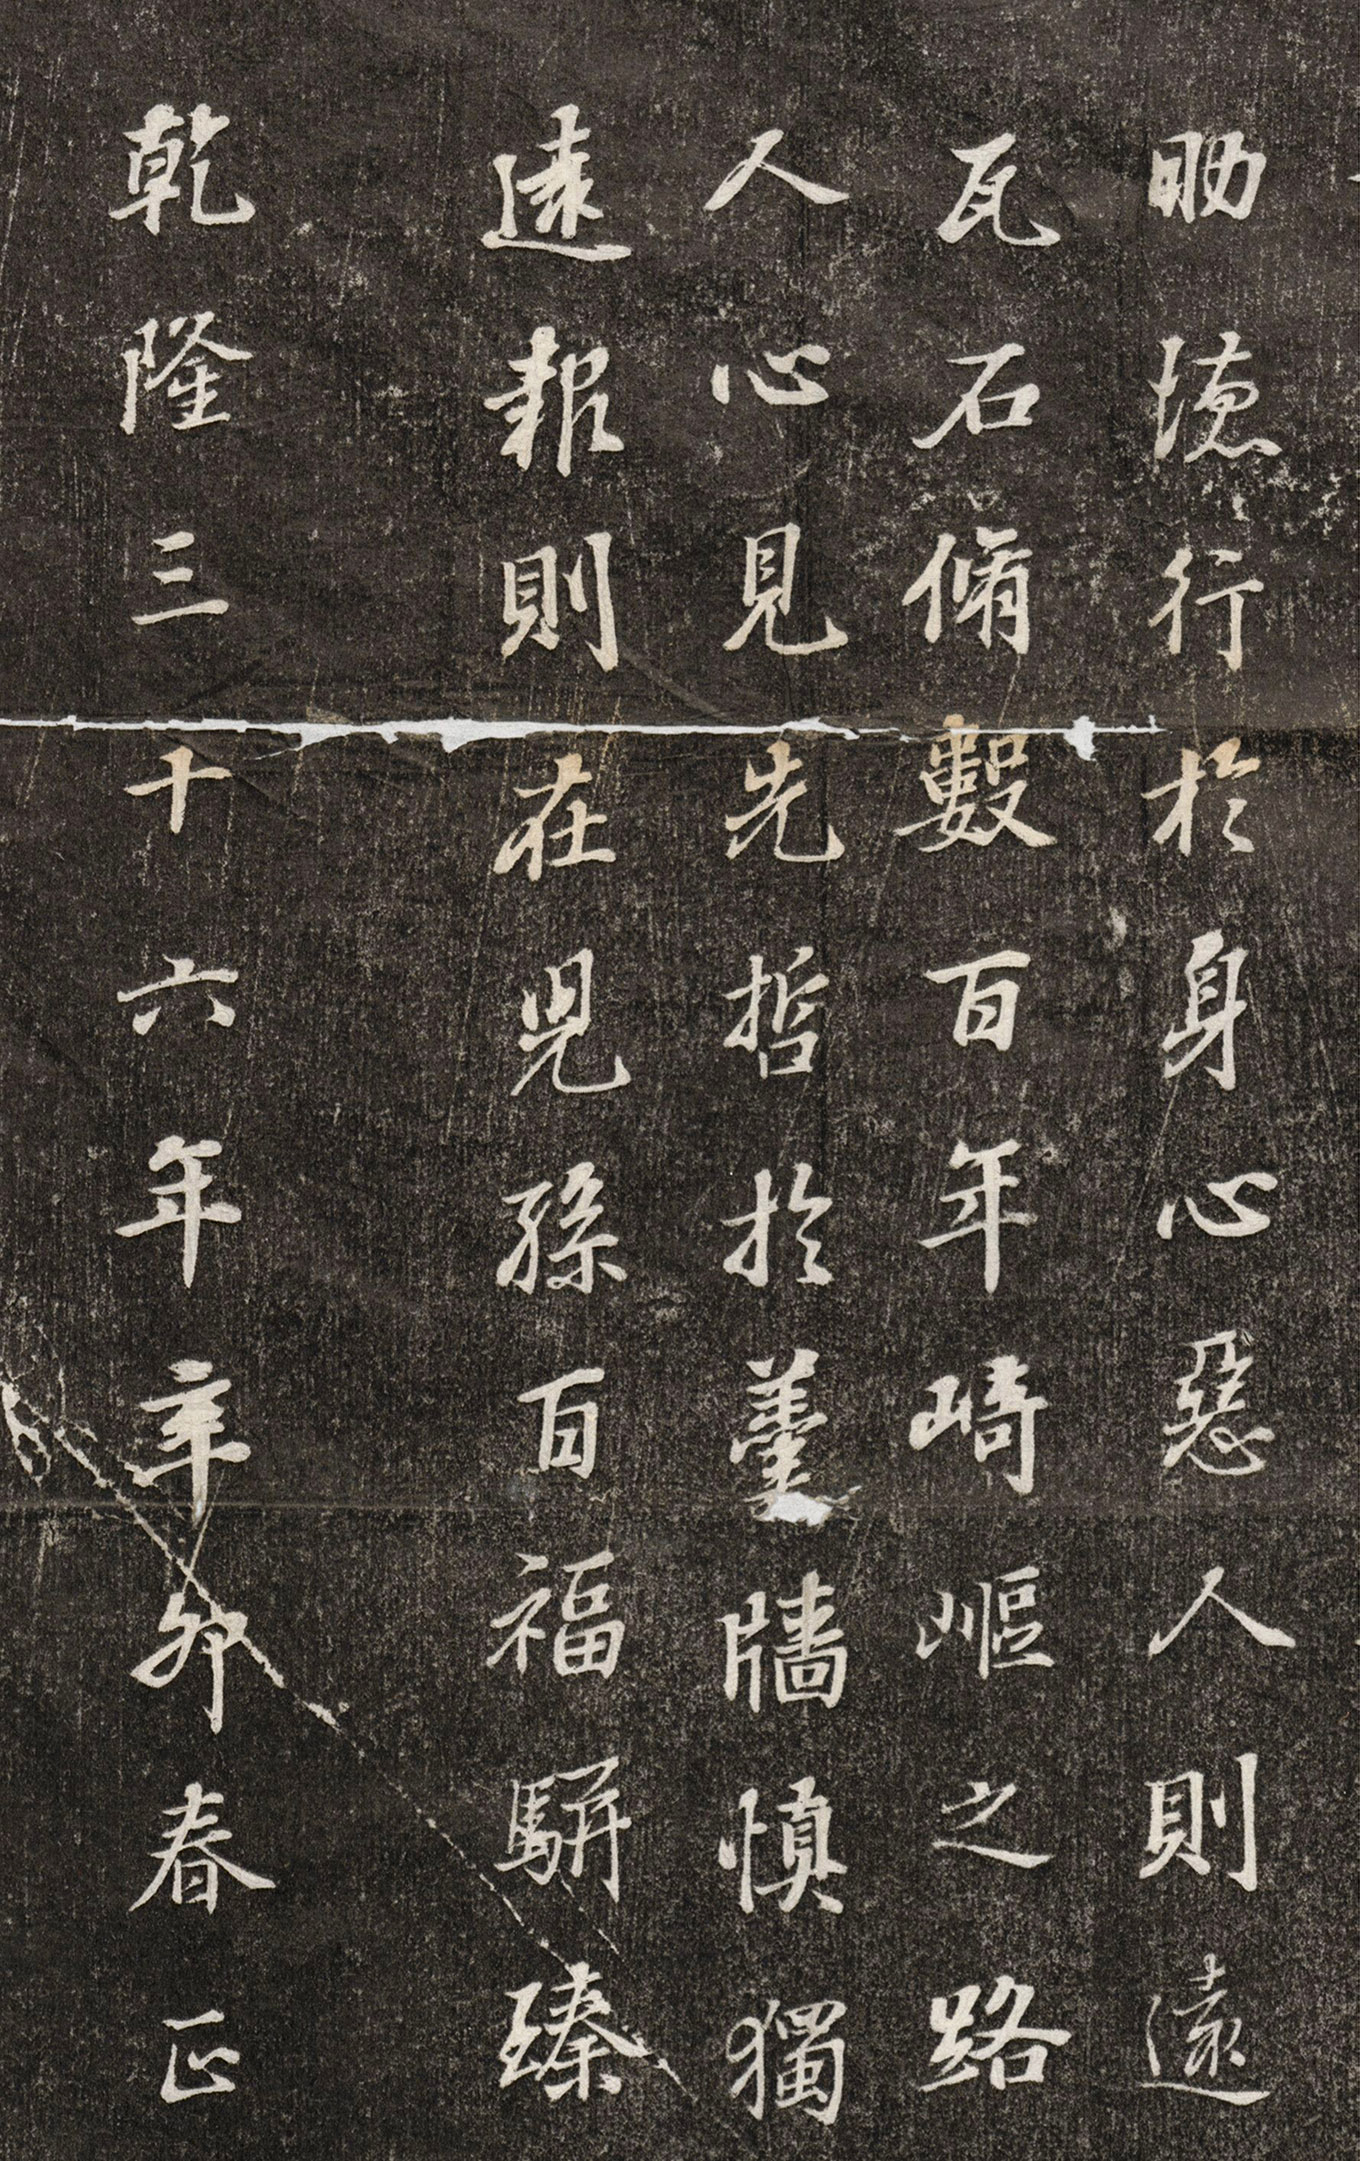 助德行於身心惡人則遠
瓦石脩數百年崎嶇之路
人心見先哲於羹牆慎獨
遠報則在兒孫百福駢臻
乾隆三十六年辛卯春正